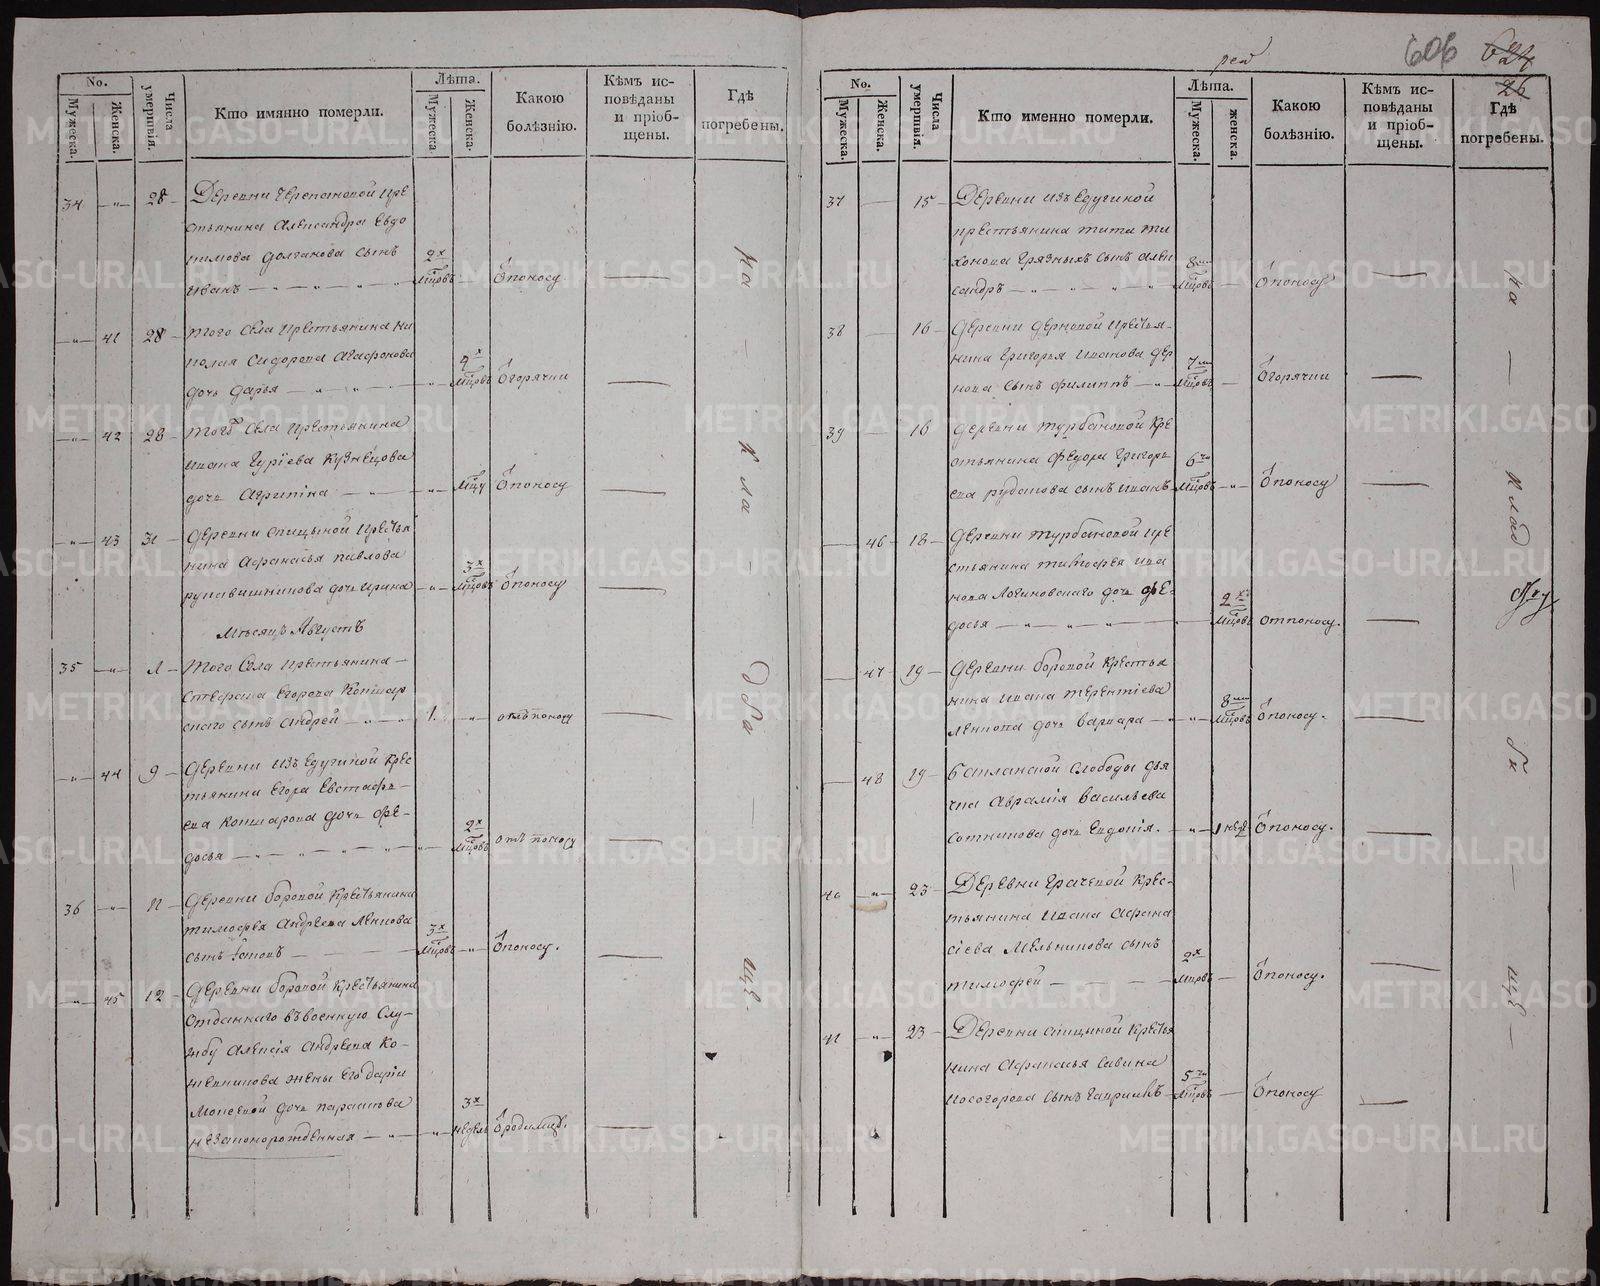 606 624
26
No.
Мужеска.
Женска.
Числа умершвія.
Кто имянно померли.
Лѣта.
Мужеска.
Женска.
Какою болѣзнію.
Кѣмъ исповѣданы и пріобщены.
Гдѣ погребены.
34 —"— 28 Деревни Черепановой кре
стьянина Александра Евдо
кимова Долганова сынъ
Иванъ 2х мцовъ Ѿ поносу
—"— 41 28 Того Села крестьянина Ни
колая Сидорова Агафонова
дочь Дарья 4х мцовъ Ѿ горячки
—"— 42 28 Того Села крестьянина
Ивана Гуріева Кузнецова
дочь Агрипина мцу Ѿ поносу
—"— 43 31 Деревни Спицыной крестья
нина Афанасья Павлова
Рукавишникова дочь Ирина 3х мцовъ Ѿ поносу
Мѣсяцъ Августъ
35 —"— 1 Того Села крестьянина
Стефана Егорова
сынъ Андрей 1 отъ поносу
—"— 44 9 Деревни Изъедугиной крес
тьянина Егора Евстафи
ева Кошкарова дочь Фе-
досья 2х мцовъ отъ поносу
36 —"— 11 Деревни Боровой крестьянина
Тимофея Андреева Леннова
сынъ 3х мцовъ Ѿ поносу.
—"— 45 12 Деревни Боровой крестьянина
отданнаго въ военную слу-
жбу Алексія Андреева Ко-
жевникова жены Его Даріи
дочь Парасковья
незаконорожденная 3х недель Ѿ родимца.
на — кла — дби — ще.
No.
Мужеска.
Женска.
Числа умершвія.
Кто именно померли.
Лѣта.
Мужеска.
женска.
Какою болѣзнію.
Кѣмъ исповѣданы и пріобщены.
Гдѣ погребены.
37 — 15 Деревни Изъедугиной
крестьянина Тита Ти
хонова Грязныхъ сынъ Алек
сандръ 8ми мцовъ Ѿ поносу
38 — 16 Деревни Дерновой крестья-
нина Григорья Иванова Дер
нова сынъ Филиппъ 7ми мцовъ Ѿ горячки
39 — 16 Деревни Турбановой кре
стьянина Федора Григорь
ева сынъ Иванъ 6ти мцовъ Ѿ поносу
— 46 18 Деревни Турбановой кре
стьянина Тимофея Ива
нова Логиновскаго дочь Фе-
досья 2хъ мцовъ от поносу.
— 47 19 Деревни Боровой крестья
нина Ивана Терентіева
Леннова дочь Варвара 8ми мцовъ Ѿ поносу.
— 48 19 Слободы дья
чка Аврамія Васильева
Сотникова дочь Евдокія. 1 неде Ѿ поносу.
40 " 23 Деревни Грачевой крес-
тьянина Ивана Афана
сіева Мельникова сынъ
Тимофей 2х мцовъ Ѿ поносу.
41 " 23 Деревни Спицыной крестья
нина Афанасья Савина
Косогорова сынъ Гавриилъ 5ти мцовъ Ѿ поносу
на — клад би — ще —
METRIKI.GASO-URAL.RU